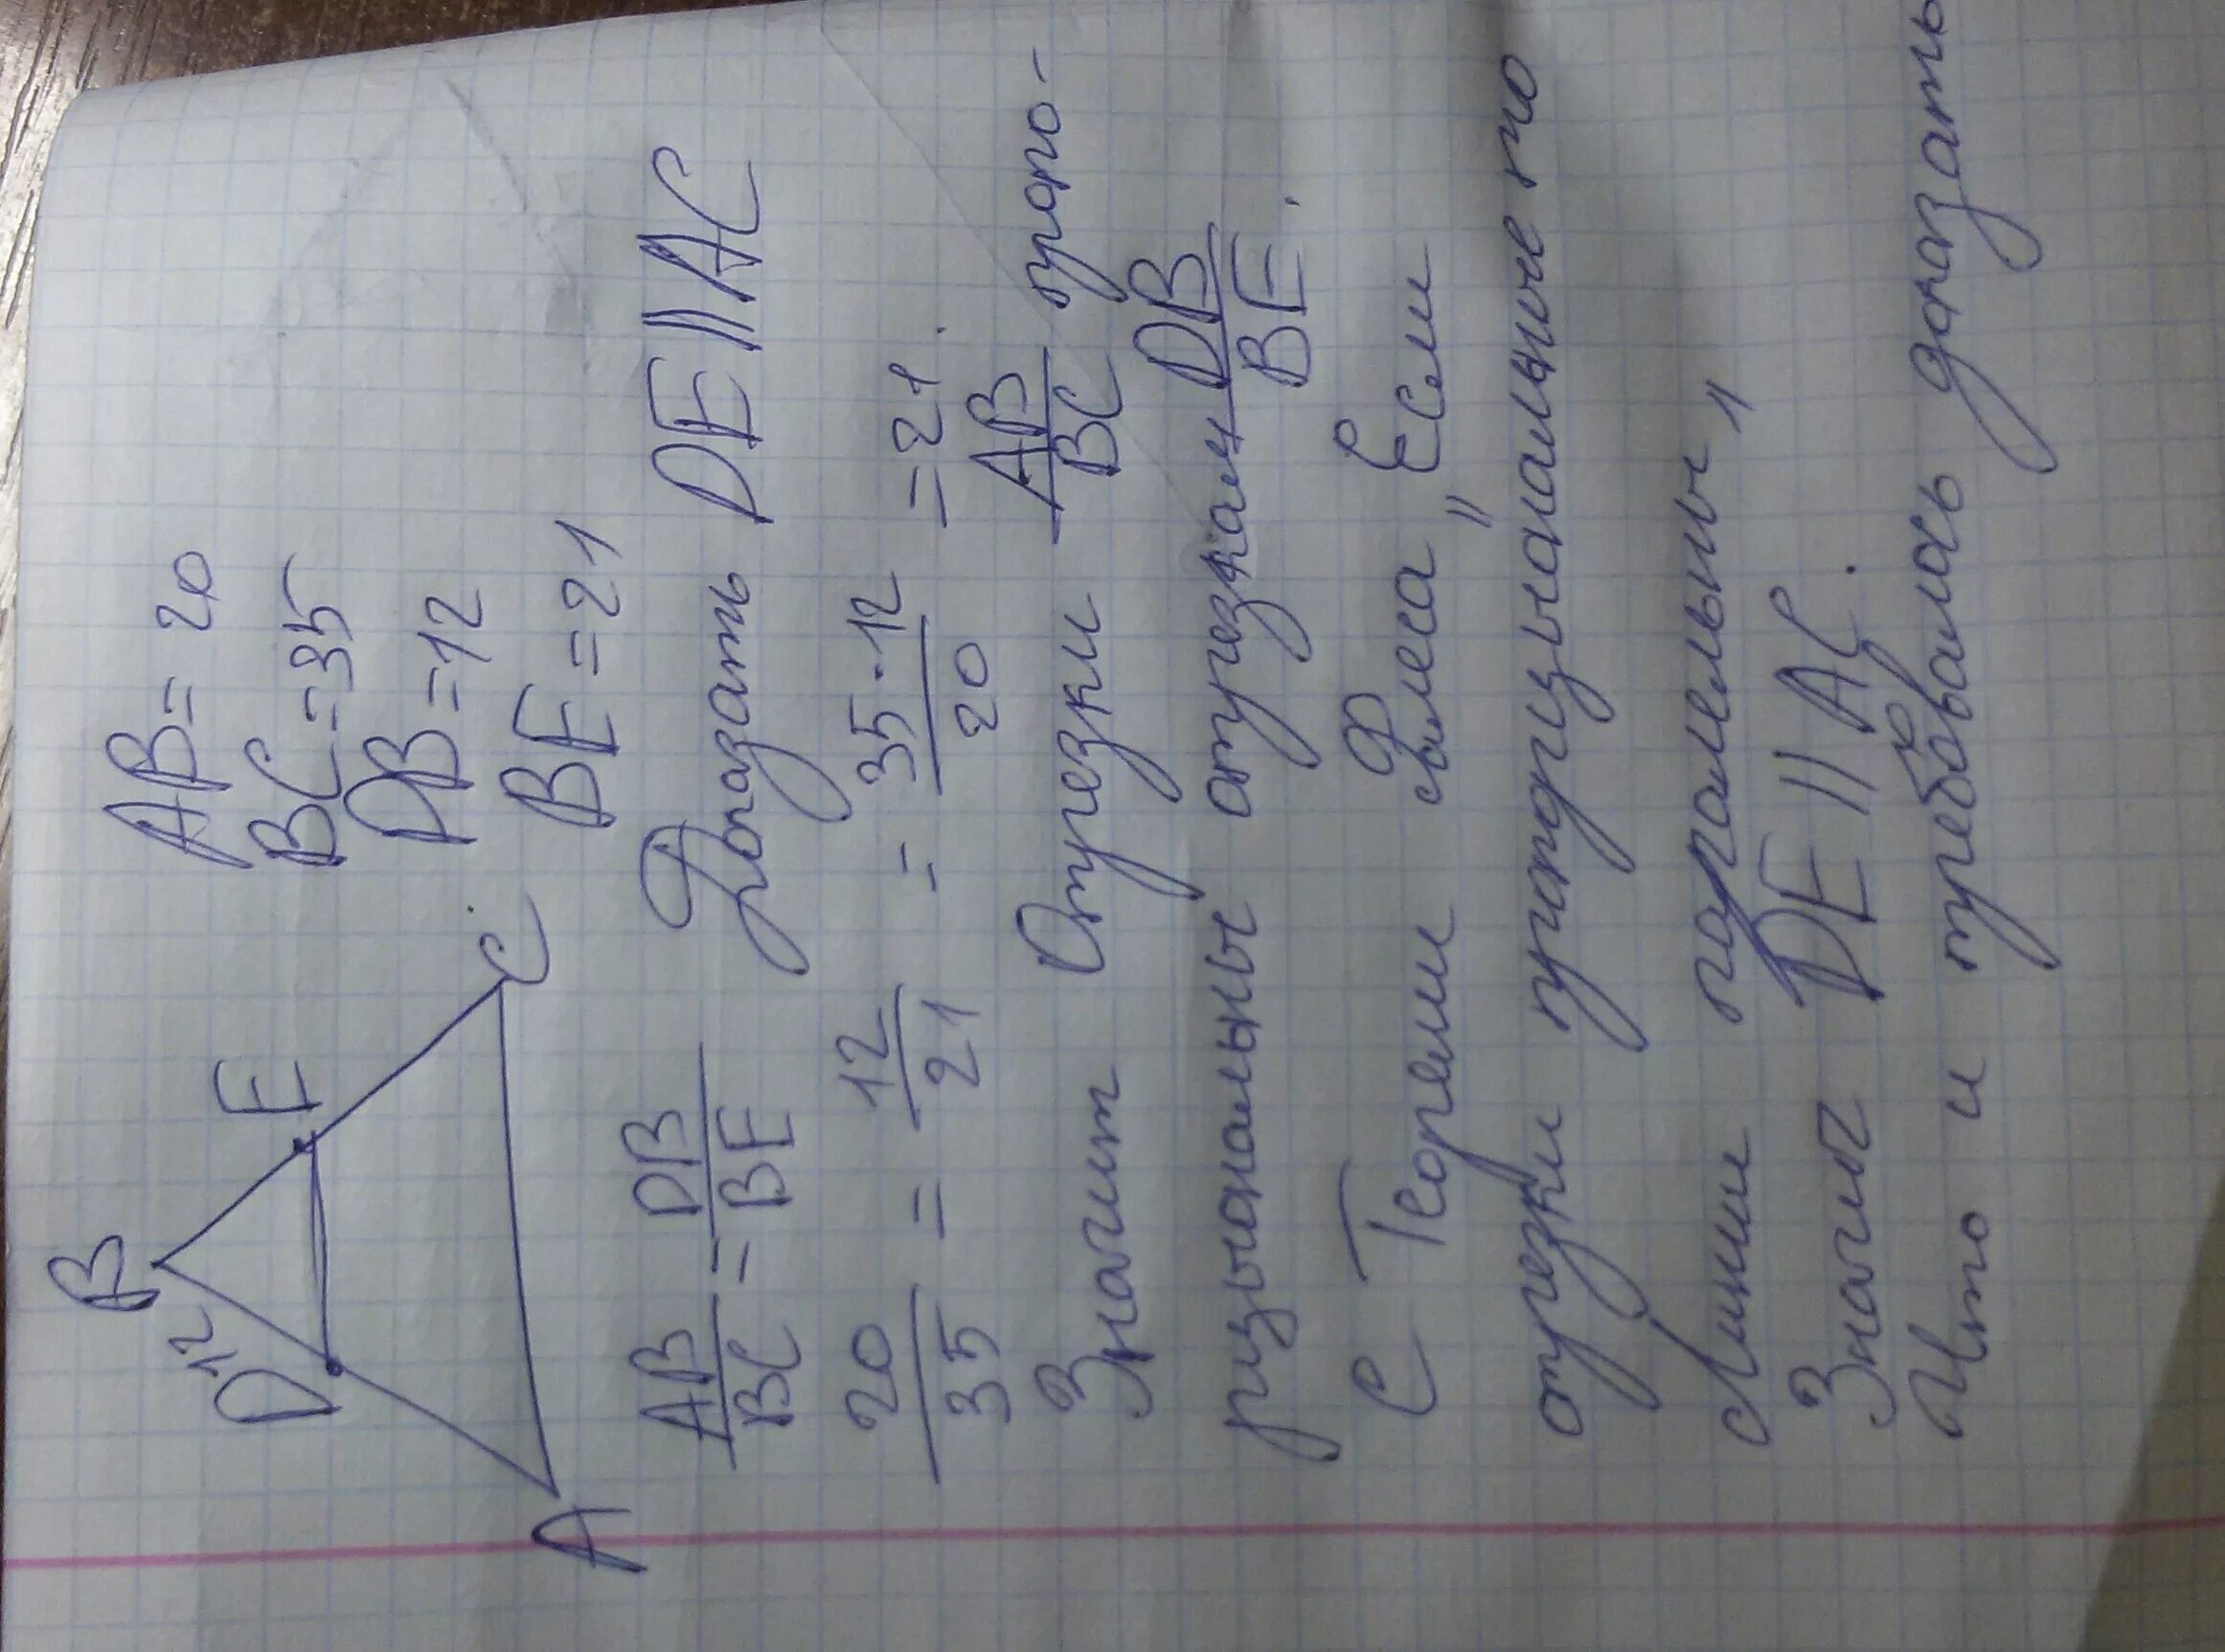 B
D 12
E
A
C
AB = 20
BC = 35
DB = 12
BE = 21
AB/BC = DB/BE Доказать DE || AC
20/35 = 12/21 = 35·12/20 = 21.
Значит Отрезки AB/BC пропо-
рцыональны отрезкам DB/BE.
С Теореми Фалеса „Если
отрезки пропорцыональные то
Линии паралельны"
Значит DE || AC.
Что и требовалось доказать